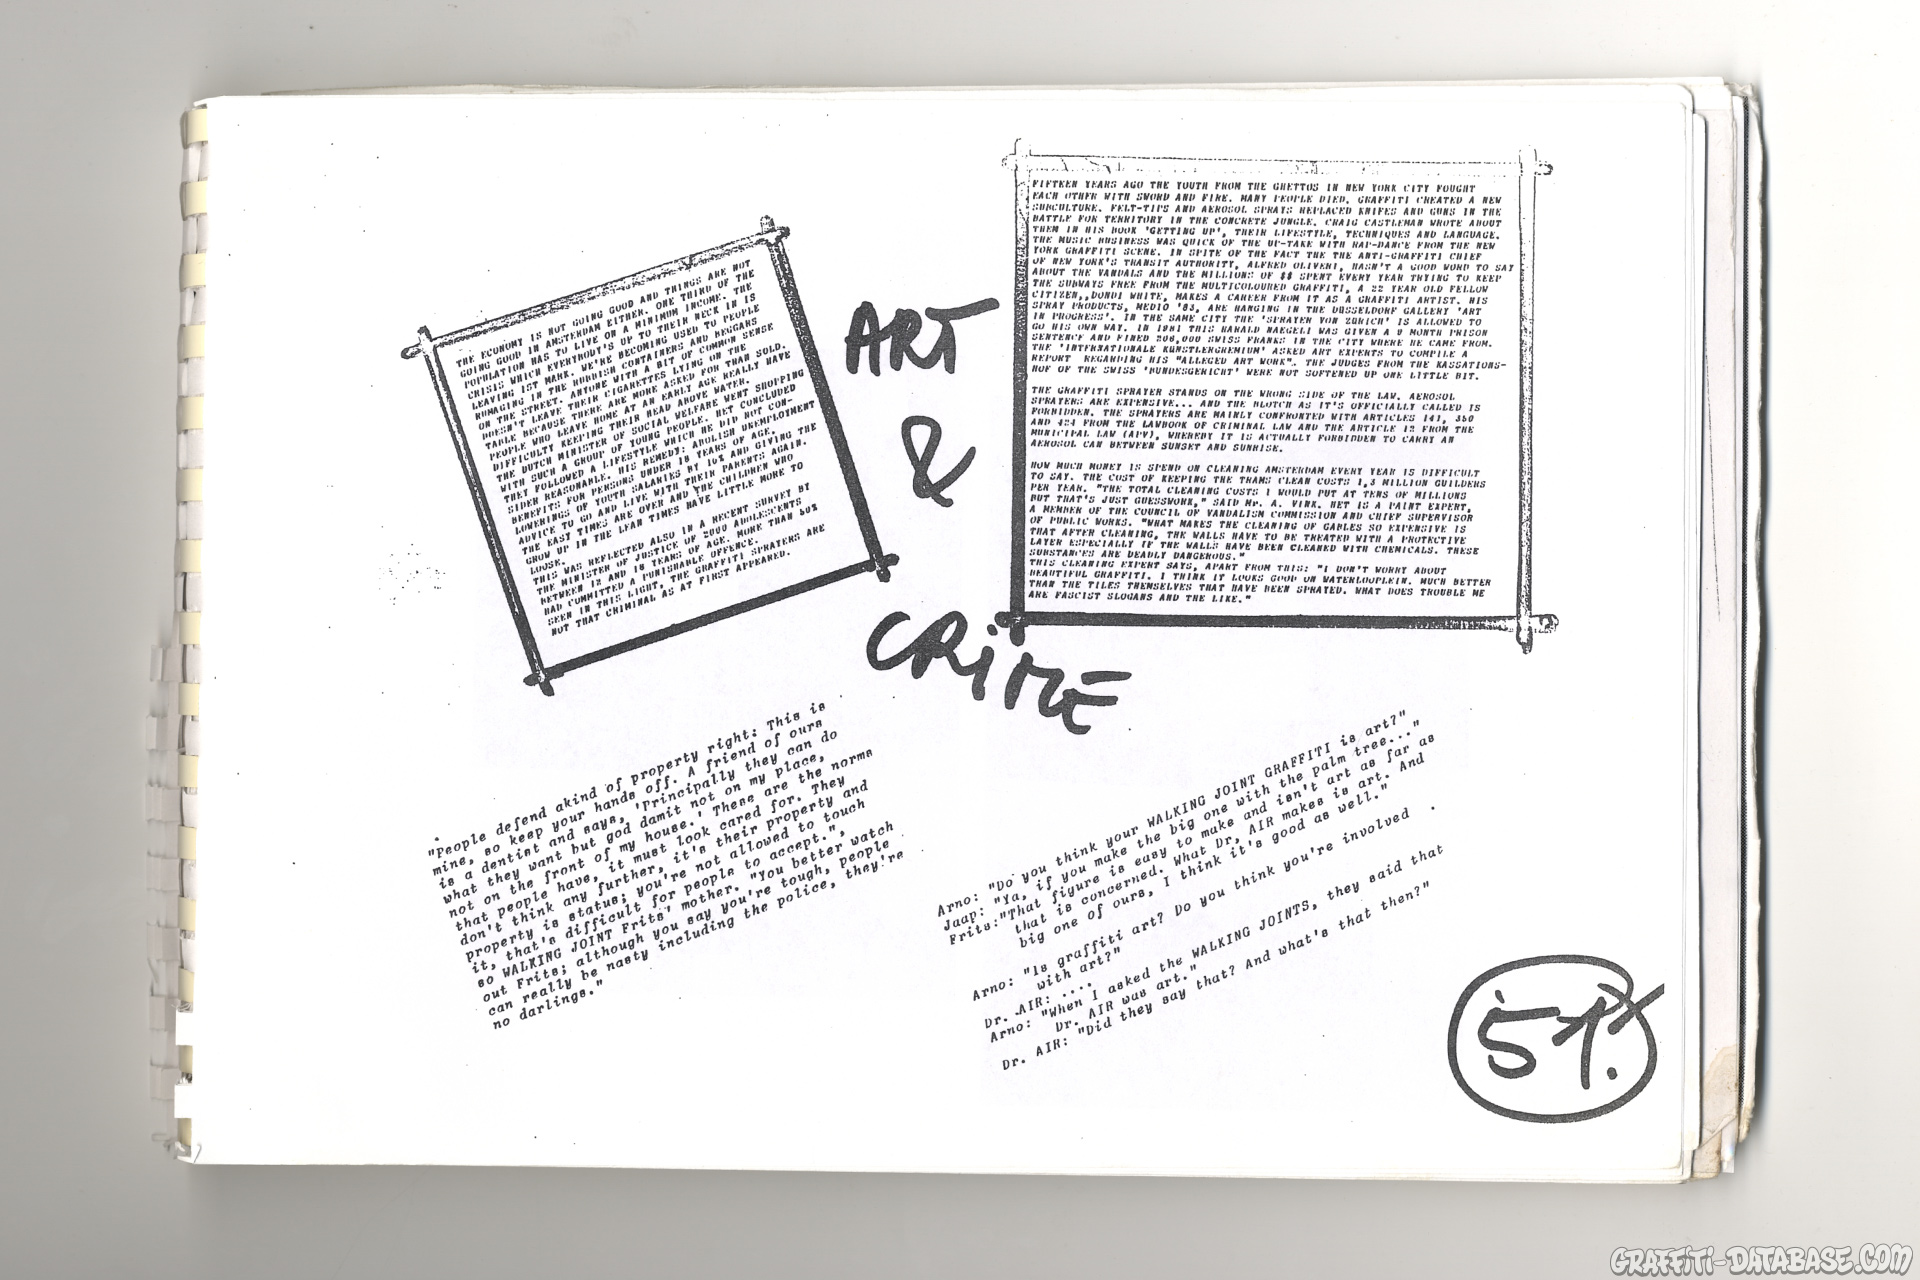 THE ECONOMY IS NOT GOING GOOD AND THINGS ARE NOT
GOING GOOD IN AMSTERDAM EITHER. ONE THIRD OF THE
POPULATION HAS TO LIVE ON A MINIMUM INCOME. THE
CRISIS WHICH EVERYBODY'S UP TO THEIR NECK IN IS
LEAVING IST MARK. WE'RE BECOMING USED TO PEOPLE
RUMAGING IN THE RUBBISH CONTAINERS AND BEGGARS
ON THE STREET. ANYONE WITH A BIT OF COMMON SENSE
DOESN'T LEAVE THEIR CIGARETTES LYING ON THE
TABLE BECAUSE THERE ARE MORE ASKED FOR THAN SOLD.
PEOPLE WHO LEAVE HOME AT AN EARLY AGE REALLY HAVE
DIFFICULTY KEEPING THEIR HEAD ABOVE WATER.
THE DUTCH MINISTER OF SOCIAL WELFARE WENT SHOPPING
WITH SUCH A GROUP OF YOUNG PEOPLE. HET CONCLUDED
THEY FOLLOWED A LIFESTYLE WHICH HE DID NOT CON-
SIDER REASONABLE. HIS REMEDY: ABOLISH UNEMPLOYMENT
BENEFITS FOR PERSONS UNDER 18 YEARS OF AGE.
LOWERINGS OF YOUTH SALARIES BY 10% AND GIVING THE
ADVICE TO GO AND LIVE WITH THEIR PARENTS AGAIN.
THE EASY TIMES ARE OVER AND THE CHILDREN WHO
GROW UP IN THE LEAN TIMES HAVE LITTLE MORE TO
LOOSE.
THIS WAS REFLECTED ALSO IN A RECENT SURVEY BY
THE MINISTER OF JUSTICE OF 2000 ADOLESCENTS
BETWEEN 12 AND 18 YEARS OF AGE. MORE THAN 80%
HAD COMMITTED A PUNISHABLE OFFENCE.
SEEN IN THIS LIGHT, THE GRAFFITI SPRAYERS ARE
NOT THAT CRIMINAL AS AT FIRST APPEARED.
ART
&
CRIME
FIFTEEN YEARS AGO THE YOUTH FROM THE GHETTOS IN NEW YORK CITY FOUGHT
EACH OTHER WITH SWORD AND FIRE. MANY PEOPLE DIED. GRAFFITI CREATED A NEW
SUBCULTURE. FELT-TIPS AND AEROSOL SPRAYS REPLACED KNIFES AND GUNS IN THE
BATTLE FOR TERRITORY IN THE CONCRETE JUNGLE. CRAIG CASTLEMAN WROTE ABOUT
THEM IN HIS BOOK 'GETTING UP', THEIR LIFESTYLE, TECHNIQUES AND LANGUAGE.
THE MUSIC BUSINESS WAS QUICK OF THE UP-TAKE WITH RAP-DANCE FROM THE NEW
YORK GRAFFITI SCENE. IN SPITE OF THE FACT THE THE ANTI-GRAFFITI CHIEF
OF NEW YORK'S TRANSIT AUTHORITY, ALFRED OLIVERI, HASN'T A GOOD WORD TO SAY
ABOUT THE VANDALS AND THE MILLIONS OF $$ SPENT EVERY YEAR TRYING TO KEEP
THE SUBWAYS FREE FROM THE MULTICOLOURED GRAFFITI, A 22 YEAR OLD FELLOW
CITIZEN,,DONDI WHITE, MAKES A CAREER FROM IT AS A GRAFFITI ARTIST. HIS
SPRAY PRODUCTS, MEDIO '83, ARE HANGING IN THE DUSSELDORF GALLERY 'ART
IN PROGRESS'. IN THE SAME CITY THE 'SPRAYER VON ZURICH' IS ALLOWED TO
GO HIS OWN WAY. IN 1981 THIS HARALD NAEGELI WAS GIVEN A 9 MONTH PRISON
SENTENCE AND FINED 206,000 SWISS FRANKS IN THE CITY WHERE HE CAME FROM.
THE 'INTERNATIONALE KUNSTLERGREMIUM' ASKED ART EXPERTS TO COMPILE A
REPORT REGARDING HIS "ALLEGED ART WORK". THE JUDGES FROM THE KASSATIONS-
HOF OF THE SWISS 'BUNDESGERICHT' WERE NOT SOFTENED UP ONE LITTLE BIT.
THE GRAFFITI SPRAYER STANDS ON THE WRONG SIDE OF THE LAW. AEROSOL
SPRAYERS ARE EXPENSIVE... AND THE BLOTCH AS IT'S OFFICIALLY CALLED IS
FORBIDDEN. THE SPRAYERS ARE MAINLY CONFRONTED WITH ARTICLES 141, 350
AND 424 FROM THE LAWBOOK OF CRIMINAL LAW AND THE ARTICLE 12 FROM THE
MUNICIPAL LAW (APV), WHEREBY IT IS ACTUALLY FORBIDDEN TO CARRY AN
AEROSOL CAN BETWEEN SUNSET AND SUNRISE.
HOW MUCH MONEY IS SPEND ON CLEANING AMSTERDAM EVERY YEAR IS DIFFICULT
TO SAY. THE COST OF KEEPING THE TRAMS CLEAN COSTS 1,3 MILLION GUILDERS
PER YEAR. "THE TOTAL CLEANING COSTS I WOULD PUT AT TENS OF MILLIONS
BUT THAT'S JUST GUESSWORK," SAID MR. A. VINK. HET IS A PAINT EXPERT,
A MEMBER OF THE COUNCIL OF VANDALISM COMMISSION AND CHIEF SUPERVISOR
OF PUBLIC WORKS. "WHAT MAKES THE CLEANING OF GABLES SO EXPENSIVE IS
THAT AFTER CLEANING, THE WALLS HAVE TO BE TREATED WITH A PROTECTIVE
LAYER ESPECIALLY IF THE WALLS HAVE BEEN CLEANED WITH CHEMICALS. THESE
SUBSTANCES ARE DEADLY DANGEROUS."
THIS CLEANING EXPERT SAYS, APART FROM THIS: "I DON'T WORRY ABOUT
BEAUTIFUL GRAFFITI. I THINK IT LOOKS GOOD ON WATERLOOPLEIN. MUCH BETTER
THAN THE TILES THEMSELVES THAT HAVE BEEN SPRAYED. WHAT DOES TROUBLE ME
ARE FASCIST SLOGANS AND THE LIKE."
"People defend akind of property right: This is
mine, so keep your hands off. A friend of ours
is a dentist and says, 'Principally they can do
what they want but god damit not on my place,
not on the front of my house.' These are the norms
that people have, it must look cared for. They
don't think any further, it's their property and
property is status; you're not allowed to touch
it, that's difficult for people to accept.",
so WALKING JOINT Frits' mother. "You better watch
out Frits; although you say you're tough, people
can really be nasty including the police, they're
no darlings."
Arno: "Do you think your WALKING JOINT GRAFFITI is art?"
Jaap: "Ya, if you make the big one with the palm tree... "
Frits:"That figure is easy to make and isn't art as far as
that is concerned. What Dr, AIR makes is art. And
big one of ours, I think it's good as well."
Arno: "Is graffiti art? Do you think you're involved
with art?"
Dr. AIR: ....
Arno: "When I asked the WALKING JOINTS, they said that
Dr. AIR was art."
Dr. AIR: "Did they say that? And what's that then?"
51.
GRAFFITI-DATABASE.COM